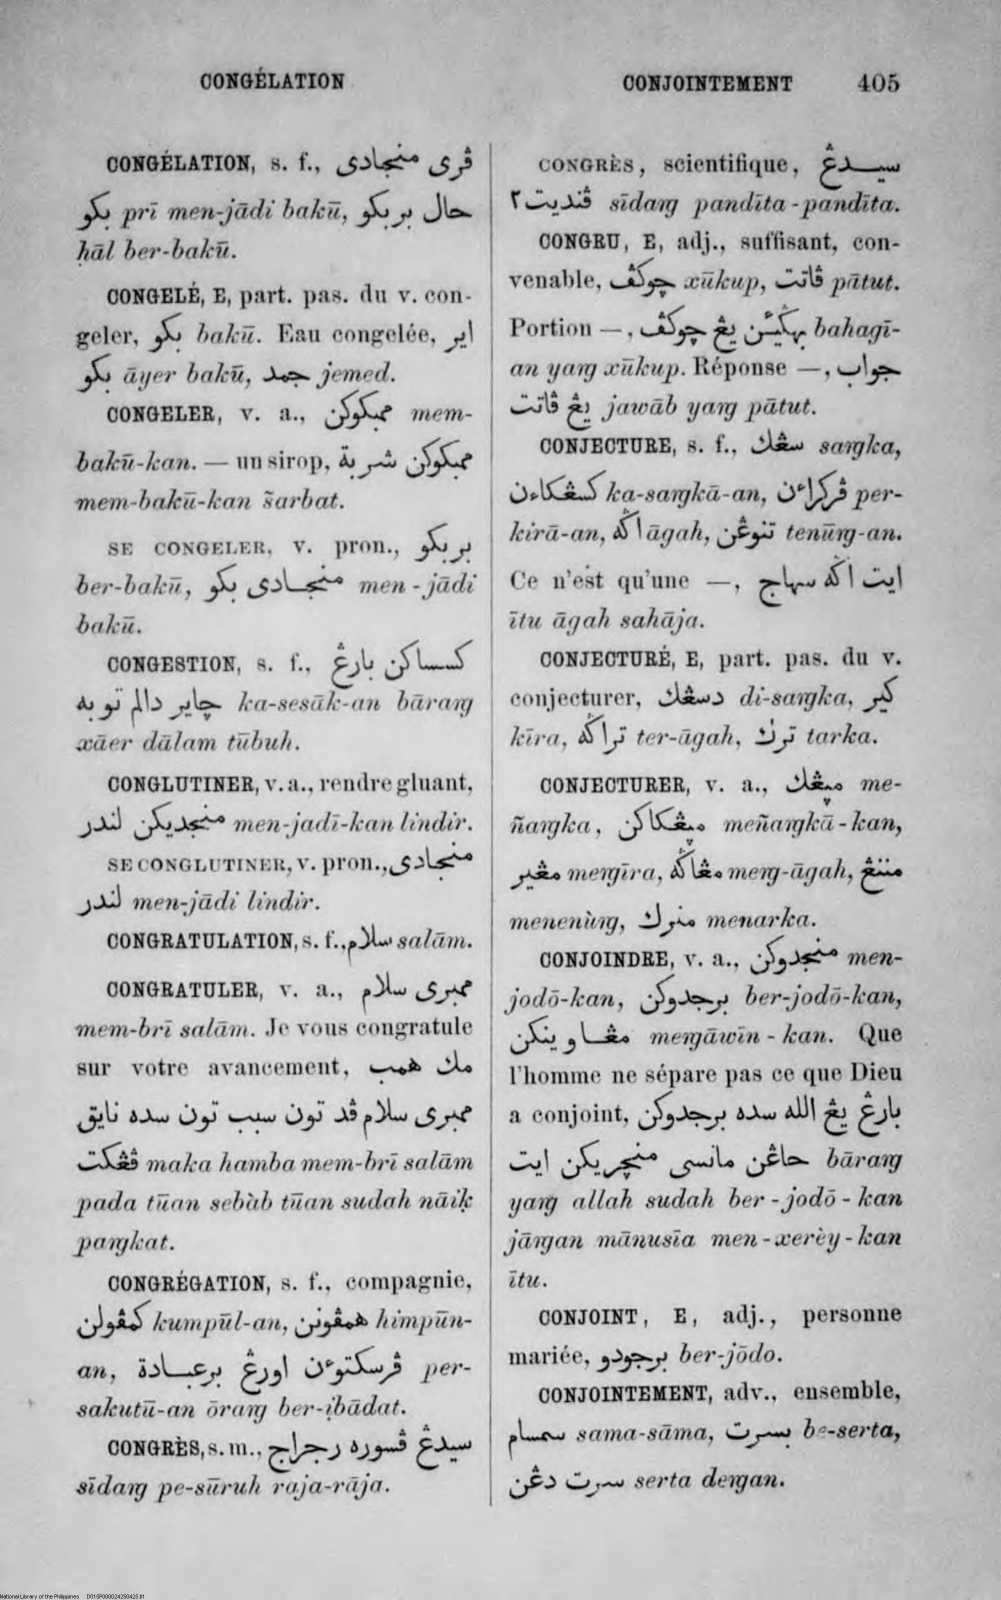 CONGÉLATION
CONJOINTEMENT 405
CONGÉLATION, s. f., ڤری منجادی
بكو prī men-jādi bakū, حال بربكو
ḥāl ber-bakū.
CONGELÉ, E, part. pas. du v. con-
geler, بكو bakū. Eau congelée, اير
بكو āyer bakū, جمد jemed.
CONGELER, v. a., ممبكوكن mem-
bakū-kan. — un sirop, ممبكوكن شربة
mem-bakū-kan šarbat.
SE CONGELER, v. pron., بربكو
ber-bakū, منجادی بكو men-jādi
bakū.
CONGESTION, s. f., كسساكن بارڠ
چاير دالم توبه ka-sesāk-an bāraŋ
xāer dālam tūbuh.
CONGLUTINER, v. a., rendre gluant,
منجديكن لندر men-jadī-kan lindir.
SE CONGLUTINER, v. pron., منجادی
لندر men-jādi lindir.
CONGRATULATION, s. f., سلام salām.
CONGRATULER, v. a., ممبری سلام
mem-brī salām. Je vous congratule
sur votre avancement, مك همب
ممبری سلام ڤد تون سبب تون سده نايق
ڤڠكت maka hamba mem-brī salām
pada tūan sebàb tūan sudah nāiḳ
paŋkat.
CONGRÉGATION, s. f., compagnie,
كمڤولن kumpūl-an, همڤونن himpūn-
an, ڤرسكتوءن اورڠ برعبادة per-
sakutū-an ōraŋ ber-ibādat.
CONGRÈS, s. m., سيدڠ ڤسوره رجراج
sīdaŋ pe-sūruh raja-rāja.
CONGRÈS, scientifique, سيدڠ
ڤنديت٢ sīdaŋ pandīta-pandīta.
CONGRU, E, adj., suffisant, con-
venable, چوكڤ xūkup, ڤاتت pātut.
Portion —, بهݢيئن يڠ چوكڤ bahagī-
an yaŋ xūkup. Réponse —, جواب
يڠ ڤاتت jawāb yaŋ pātut.
CONJECTURE, s. f., سڠك saŋka,
كسڠكاءن ka-saŋkā-an, ڤركراءن per-
kirā-an, اݢه āgah, تنوڠن tenūŋ-an.
Ce n'est qu'une —, ايت اݢه سهاج
ītu āgah sahāja.
CONJECTURÉ, E, part. pas. du v.
conjecturer, دسڠك di-saŋka, كير
kīra, تراݢه ter-āgah, ترك tarka.
CONJECTURER, v. a., مڽڠك me-
ñaŋka, مڽڠكاكن meñaŋkā-kan,
مڠير meŋīra, مڠاݢه meŋ-āgah, مننڠ
menenùŋ, منرك menarka.
CONJOINDRE, v. a., منجدوكن men-
jodō-kan, برجدوكن ber-jodō-kan,
مڠاوينكن meŋāwīn-kan. Que
l'homme ne sépare pas ce que Dieu
a conjoint, بارڠ يڠ الله سده برجدوكن
جاڠن مانسی منچريكن ايت bāraŋ
yaŋ allah sudah ber-jodō-kan
jāŋan mānusīa men-xerèy-kan
ītu.
CONJOINT, E, adj., personne
mariée, برجودو ber-jōdo.
CONJOINTEMENT, adv., ensemble,
سمسام sama-sāma, بسرت be-serta,
سرت دڠن serta deŋan.
National Library of the Philippines